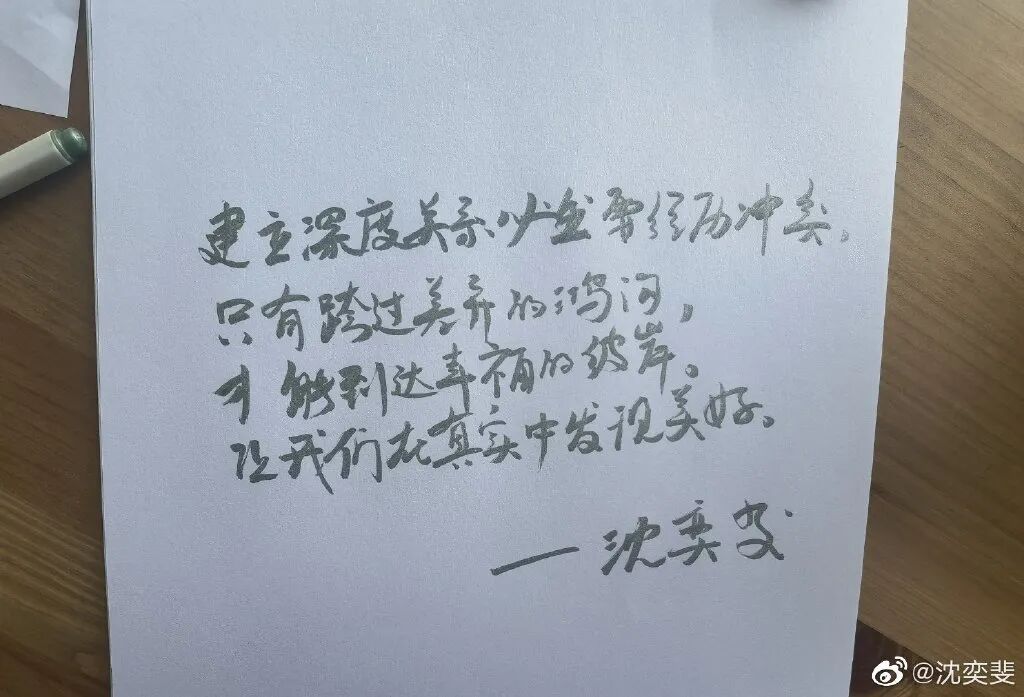 建立深度关系必然要经历冲突,
只有跨过差异的鸿沟,
才能到达幸福的彼岸。
让我们在真实中发现美好。
——沈奕斐
@沈奕斐